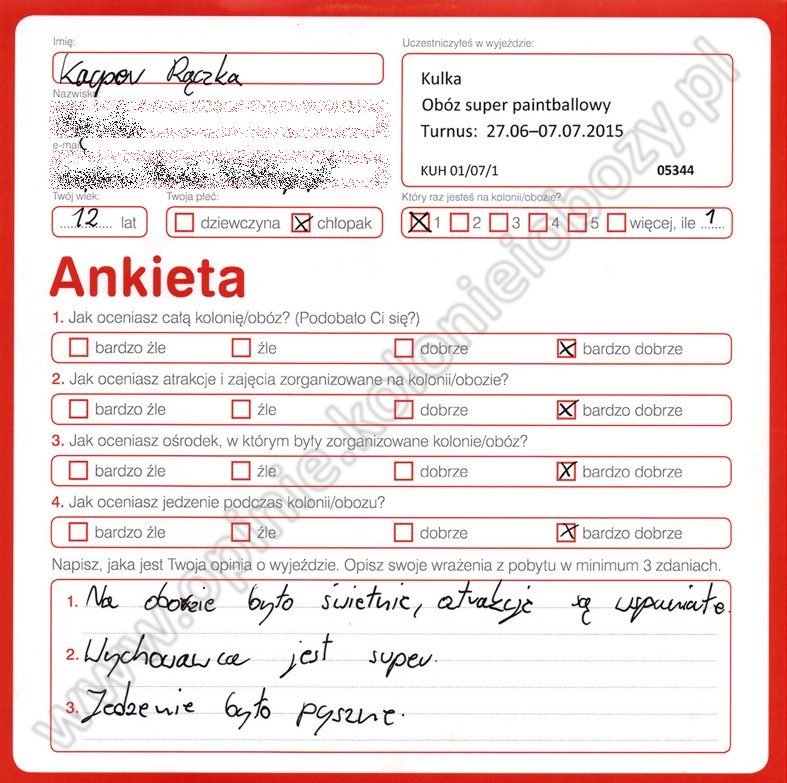 Imię:
Uczestniczyłeś w wyjeździe:
Kacper Rączka
Kulka
Obóz super paintballowy
Turnus: 27.06–07.07.2015
KUH 01/07/1 05344
Nazwisko
e-mail
Twój wiek: Twoja płeć: Który raz jesteś na kolonii/obozie?
12 lat dziewczyna chłopak 1 2 3 4 5 więcej, ile 1
Ankieta
1. Jak oceniasz całą kolonię/obóz? (Podobało Ci się?)
bardzo źle źle dobrze bardzo dobrze
2. Jak oceniasz atrakcje i zajęcia zorganizowane na kolonii/obozie?
bardzo źle źle dobrze bardzo dobrze
3. Jak oceniasz ośrodek, w którym były zorganizowane kolonie/obóz?
bardzo źle źle dobrze bardzo dobrze
4. Jak oceniasz jedzenie podczas kolonii/obozu?
bardzo źle źle dobrze bardzo dobrze
Napisz, jaka jest Twoja opinia o wyjeździe. Opisz swoje wrażenia z pobytu w minimum 3 zdaniach.
1. Na obozie było świetnie, atrakcje są wspaniałe.
2. Wychowawca jest super.
3. Jedzenie było pyszne.
www.opinie.kolonieiobozy.pl